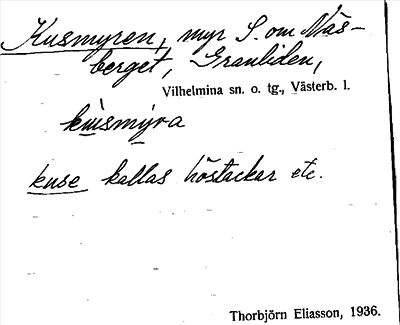 Kusmyren, myr S. om Näs-
berget, Granliden,
Vilhelmina sn. o. tg., Västerb. l.
kuse kallas höstackar etc.
Thorbjörn Eliasson, 1936.